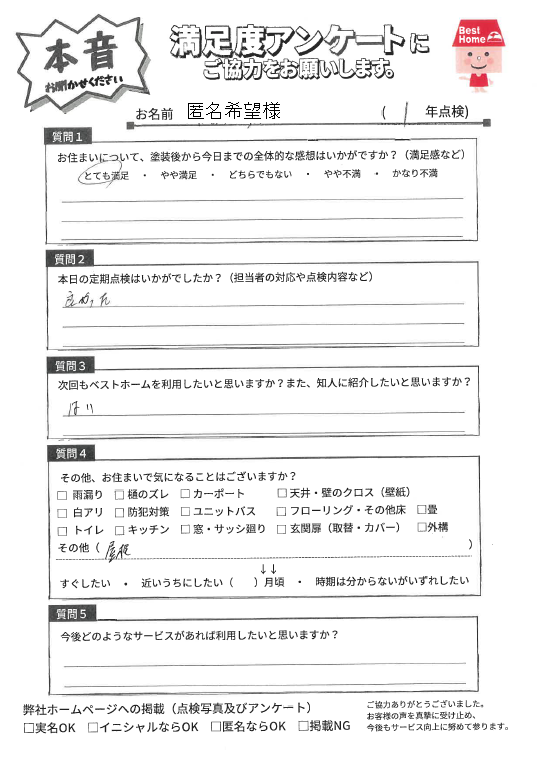 本音
お聞かせください
満足度アンケートに
ご協力をお願いします。
Best
Home
お名前 匿名希望様 ( 1 年点検)
質問1
お住まいについて、塗装後から今日までの全体的な感想はいかがですか?(満足感など)
とても満足 ・ やや満足 ・ どちらでもない ・ やや不満 ・ かなり不満
質問2
本日の定期点検はいかがでしたか?(担当者の対応や点検内容など)
良かった
質問3
次回もベストホームを利用したいと思いますか?また、知人に紹介したいと思いますか?
はい
質問4
その他、お住まいで気になることはございますか?
□ 雨漏り □ 樋のズレ □ カーポート □ 天井・壁のクロス(壁紙)
□ 白アリ □ 防犯対策 □ ユニットバス □ フローリング・その他床 □畳
□ トイレ □ キッチン □ 窓・サッシ廻り □ 玄関扉(取替・カバー) □外構
その他( 屋根 )
↓↓
すぐしたい ・ 近いうちにしたい( )月頃 ・ 時期は分からないがいずれしたい
質問5
今後どのようなサービスがあれば利用したいと思いますか?
弊社ホームページへの掲載(点検写真及びアンケート)
□実名OK □イニシャルならOK □匿名ならOK □掲載NG
ご協力ありがとうございました。
お客様の声を真摯に受け止め、
今後もサービス向上に努めて参ります。